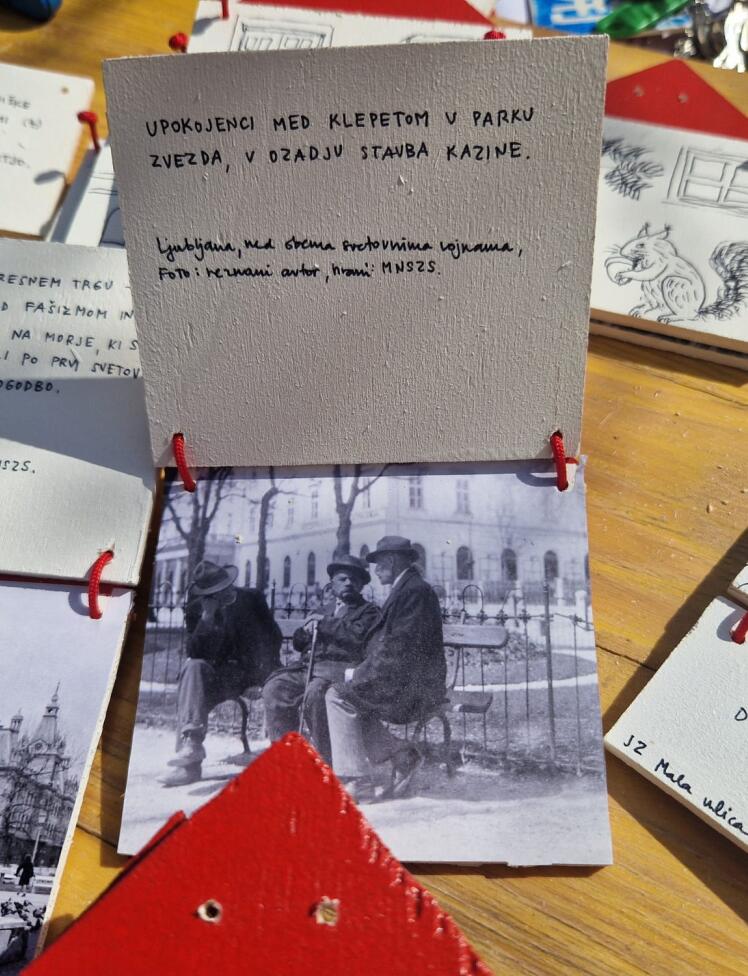 UPOKOJENCI MED KLEPETOM V PARKU
ZVEZDA, V OZADJU STAVBA KAZINE.
Ljubljana, med obema svetovnima vojnama,
Foto: neznani avtor, hrani: MNSZS.
RESNEM TRGU
FAŠIZMOM IN
NA MORJE, KI S
PO PRVI SVETOV
OGODBO.
NSZS.
D
JZ Mala ulica